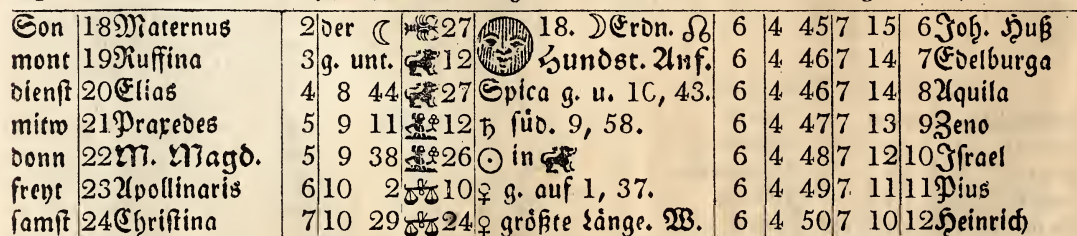 Son 18 Maternus 2 der ☾ ♋ 27 18. ☽ Erdn. ☊ 6 4 45 7 15 6 Joh. Huß
mont 19 Ruffina 3 g. unt. ♌ 12 Hundst. Anf. 6 4 46 7 14 7 Edelburga
dienst 20 Elias 4 8 44 ♌ 27 Spica g. u. 10, 43. 6 4 46 7 14 8 Aquila
mitw 21 Praxedes 5 9 11 ♍ 12 ♄ süd. 9, 58. 6 4 47 7 13 9 Zeno
donn 22 M. Magd. 5 9 38 ♍ 26 ☉ in ♌ 6 4 48 7 12 10 Israel
freyt 23 Apollinaris 6 10 2 ♎ 10 ♀ g. auf 1, 37. 6 4 49 7 11 11 Pius
samst 24 Christina 7 10 29 ♎ 24 ♀ größte Länge. W. 6 4 50 7 10 12 Heinrich